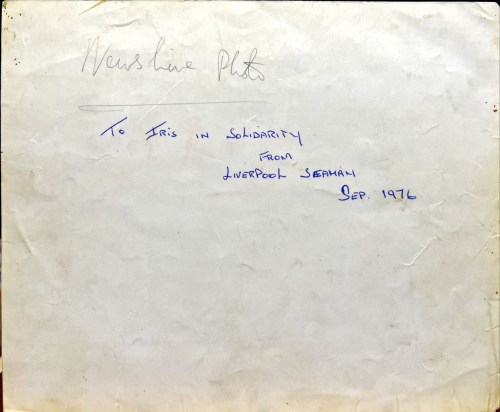 Newsline Photo
To Iris in Solidarity
From
Liverpool Seaman
Sep. 1976